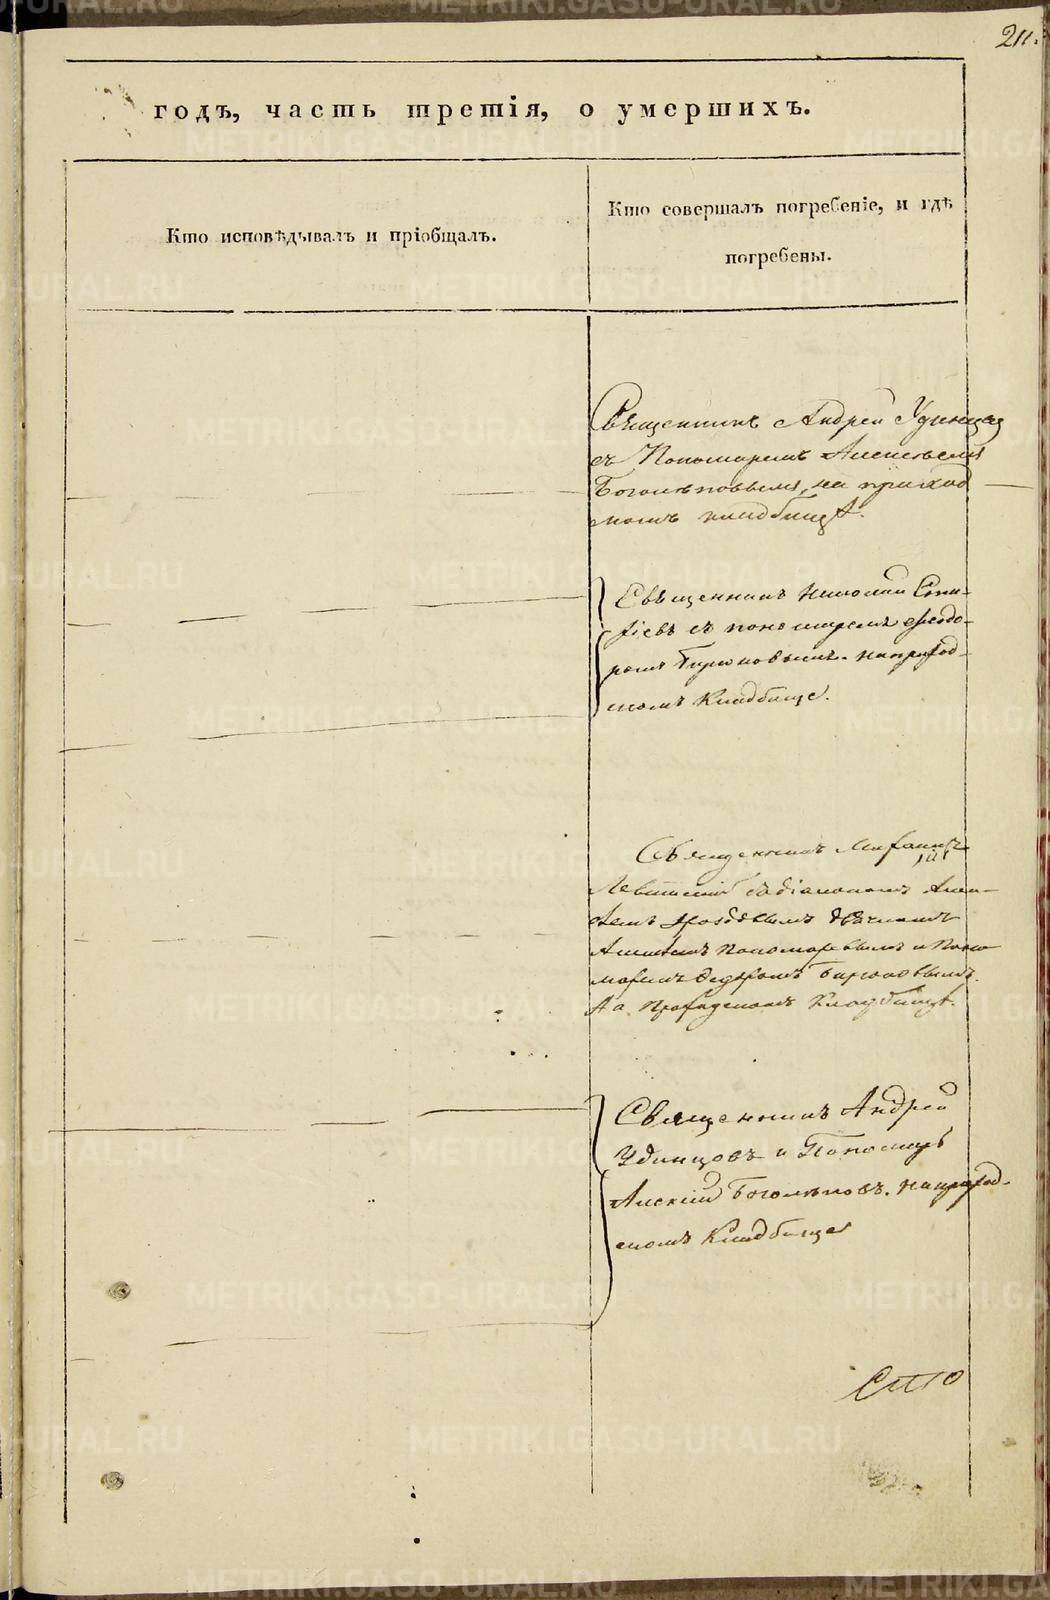 211.
годъ, часть третія, о умершихъ.
Кто исповѣдывалъ и пріобщалъ.
Кто совершалъ погребеніе, и гдѣ
погребены.
Священникъ Андрей Удинцовъ
съ Пономаремъ Алексѣемъ
Боголѣповымъ, на приход
скомъ кладбищѣ.
Священникъ Николай
съ пономаремъ Феодо-
ромъ Бирюковымъ. на приход-
скомъ Кладбище.
Священникъ
Левитскій съ діакономъ Алек-
сѣемъ Дроздовымъ дьячкомъ
Пономаревымъ и Поно
маремъ Федоромъ Бирюковымъ.
На Приходскомъ Кладбищѣ.
Священникъ Андрей
Удинцовъ и Пономарь
Алексій Боголѣповъ. на приход-
скомъ Кладбище
METRIKI.GASO-URAL.RU